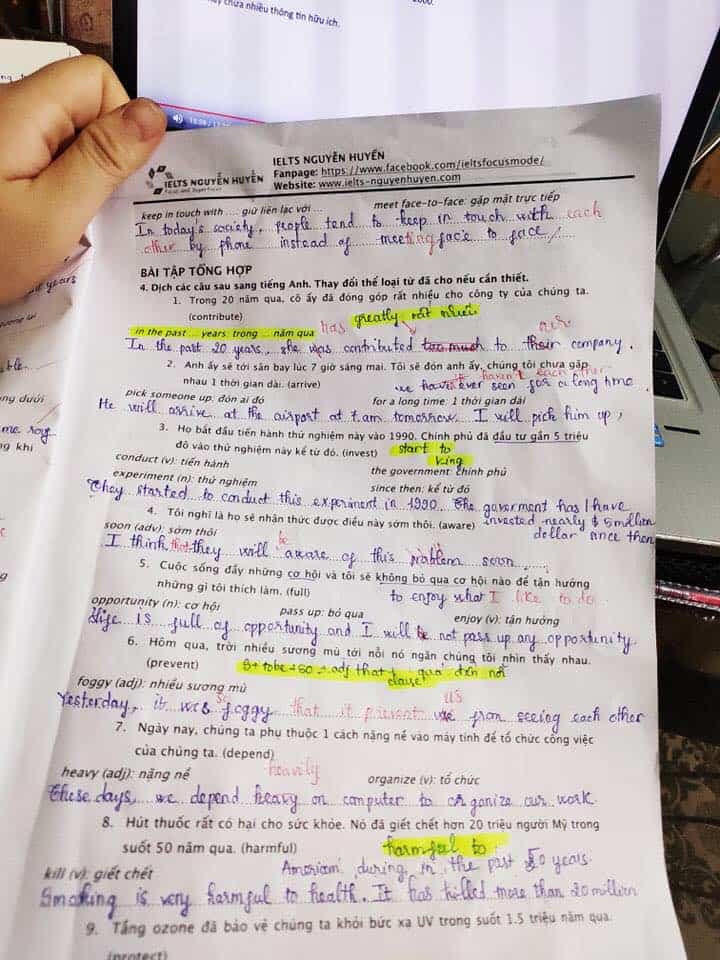 chưa nhiều thông tin hữu ích.
IELTS NGUYỄN HUYỀN
IELTS NGUYỄN HUYỀN
Fanpage: https://www.facebook.com/ieltsfocusmode/
Website: www.ielts-nguyenhuyen.com
keep in touch with .... giữ liên lạc với ... meet face-to-face: gặp mặt trực tiếp
In today's society, people tend to keep in touch with each
other by phone instead of meeting face to face
BÀI TẬP TỔNG HỢP
4. Dịch các câu sau sang tiếng Anh. Thay đổi thể loại từ đã cho nếu cần thiết.
1. Trong 20 năm qua, cô ấy đã đóng góp rất nhiều cho công ty của chúng ta.
(contribute) greatly rất nhiều
in the past ... years: trong ... năm qua has our
In the past 20 years, she was contributed too much to their company.
2. Anh ấy sẽ tới sân bay lúc 7 giờ sáng mai. Tôi sẽ đón anh ấy, chúng tôi chưa gặp
nhau 1 thời gian dài. (arrive) haven't each other
we have ever seen for a long time.
pick someone up: đón ai đó for a long time: 1 thời gian dài
He will arrive at the airport at 7am tomorrow. I will pick him up,
3. Họ bắt đầu tiến hành thử nghiệm này vào 1990. Chính phủ đã đầu tư gần 5 triệu
đô vào thử nghiệm này kể từ đó. (invest) start to
Ving
conduct (v): tiến hành the government: chính phủ
experiment (n): thử nghiệm since then: kể từ đó
They started to conduct this experiment in 1990. The goverment has / have
4. Tôi nghĩ là họ sẽ nhận thức được điều này sớm thôi. (aware) invested nearly $ 5 million
soon (adv): sớm thôi dollar since then
I think that they will be aware of this problem soon.
5. Cuộc sống đầy những cơ hội và tôi sẽ không bỏ qua cơ hội nào để tận hưởng
những gì tôi thích làm. (full) to enjoy what I like to do
opportunity (n): cơ hội pass up: bỏ qua enjoy (v): tận hưởng
Life is full of opportunity and I will be not pass up any opportunity
6. Hôm qua, trời nhiều sương mù tới nỗi nó ngăn chúng tôi nhìn thấy nhau.
(prevent) S + tobe + so + adj that + quá đến nỗi
clause
foggy (adj): nhiều sương mù us
Yesterday, it was so foggy that it prevent from seeing each other
7. Ngày nay, chúng ta phụ thuộc 1 cách nặng nề vào máy tính để tổ chức công việc
của chúng ta. (depend)
heavy (adj): nặng nề heavily organize (v): tổ chức
These days, we depend heavy on computer to organize our work.
8. Hút thuốc rất có hại cho sức khỏe. Nó đã giết chết hơn 20 triệu người Mỹ trong
suốt 50 năm qua. (harmful) harmful to
kill (v): giết chết American during in the past 50 years.
Smoking is very harmful to health. It has killed more than 20 million
9. Tầng ozone đã bảo vệ chúng ta khỏi bức xạ UV trong suốt 1.5 triệu năm qua.
(protect)